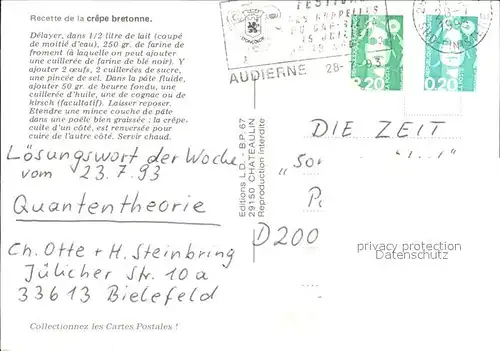 Recette de la crêpe bretonne.
Délayer, dans 1/2 litre de lait (coupé
de moitié d'eau), 250 gr. de farine de
froment (à laquelle on peut ajouter
une cuillerée de farine de blé noir). Y
ajouter 2 œufs, 2 cuillerées de sucre,
une pincée de sel. Dans la pâte fluide,
ajouter 50 gr. de beurre fondu, une
cuillerée d'huile, une de cognac ou de
kirsch (facultatif). Laisser reposer.
Etendre une mince couche de pâte
dans une poêle bien graissée : la crêpe
cuite d'un côté, est renversée pour
cuire de l'autre côté. Servir chaud.
Lösungswort der Woche
vom 23.7.93
Quantentheorie
Ch. Otte + H. Steinbring
Jülicher Str. 10a
33613 Bielefeld
Collectionnez les Cartes Postales !
Editions L.D. - B.P. 67
29150 CHATEAULIN
Reproduction interdite
AUDIERNE 28-
0,20
DIE ZEIT
D200
privacy protection
Datenschutz